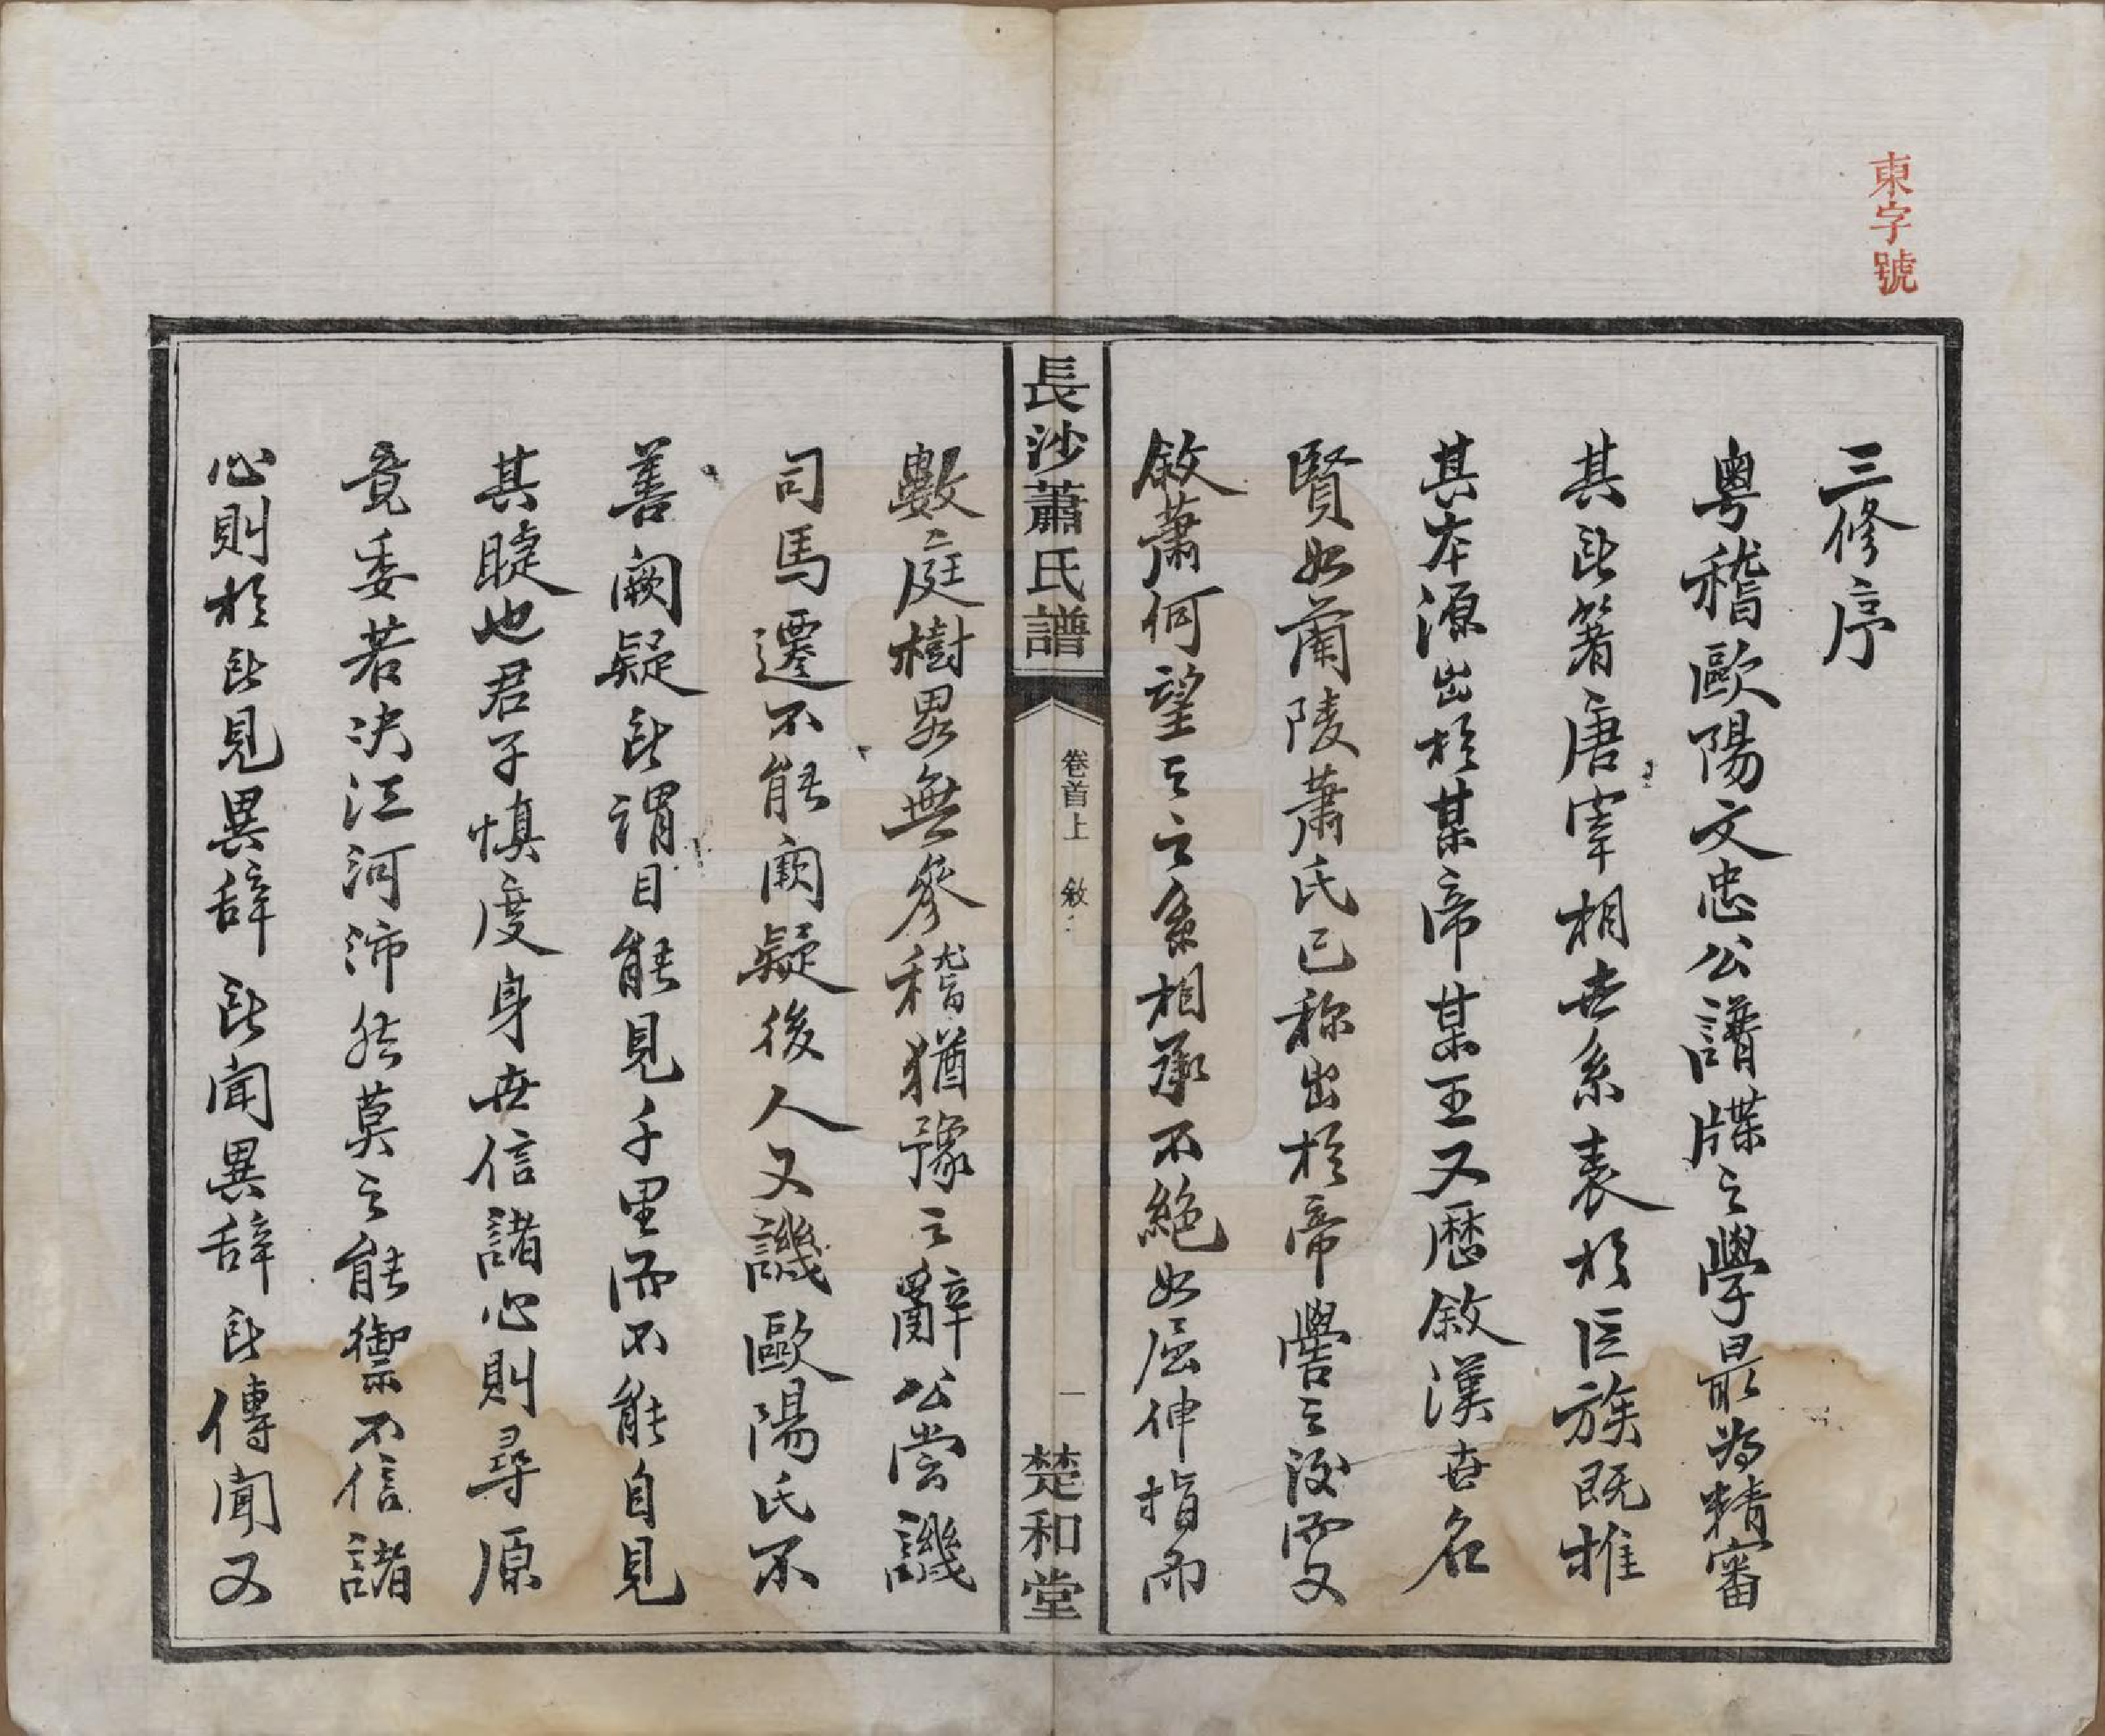 東字號
三修序
粵稽歐陽文忠公譜牒之學最為精審
其所著唐宰相世系表於巨族既推
其本源出於某帝某王又歷敘漢世名
賢如蘭陵蕭氏已称出於帝嚳之後而又
敘蕭何望之之系相承不絕如屈伸指而
長沙蕭氏譜
卷首上 敘
一
楚和堂
數庭樹畧無參稽猶豫之辭公嘗譏
司馬遷不能闕疑後人又譏歐陽氏不
善闕疑所謂目能見千里而不能自見
其睫也君子慎度身世信諸心則尋原
竟委若決江河沛然莫之能禦不信諸
心則於所見異辞所聞異辞所傳聞又